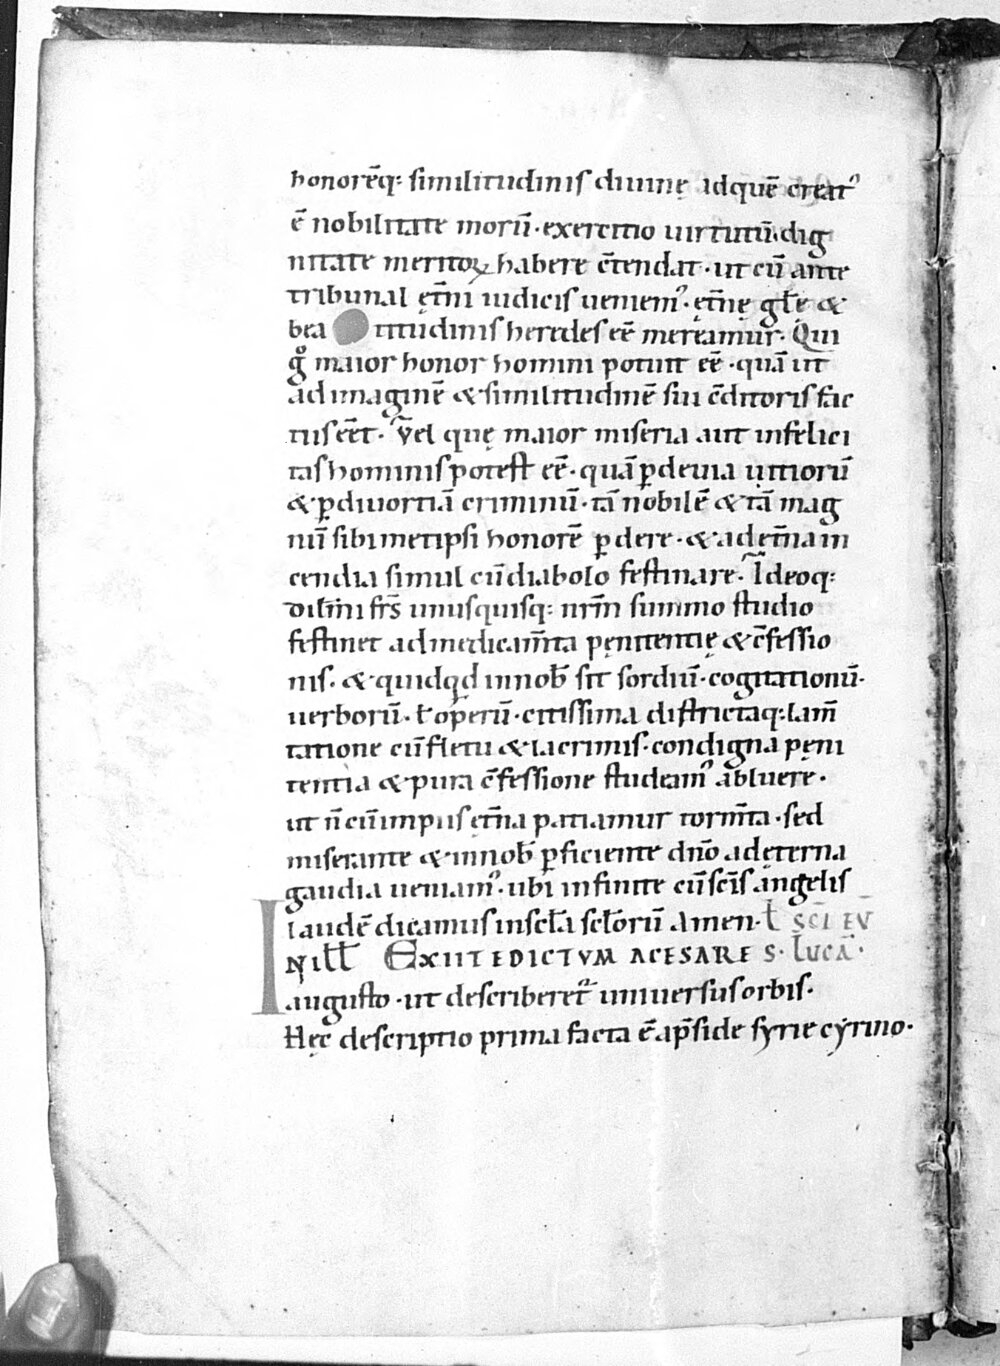 honorēq: similitudinis diuinę adquē creat᾽
ē nobilitate morū· exercitio uirtutū· dig
nitate meritoꝝ habere c̄tendat· ut cū ante
tribunal ęt̄ni iudicis ueniem᾽· ęt̄nę gl̄ę &
beatitudinis heredes eē mereamur· Qui
gͦ maior honor homini potuit eē· quā ut
ad imaginē & similitudinē sui c̄ditoris fac
tus eēt· Vel quę maior miseria aut infelici
tas hominis potest eē· quā ꝑ deuia uitiorū
& ꝑ diuortiā criminū· tā nobilē & tā mag
nū sibimetipsi honorē ꝑdere· & ad et̄na in
cendia simul cū diabolo festinare· Ideoq:
dil̄mi fr̄s unusquisq: nr̄m summo studio
festinet ad medicam̄ta pęnitentię & c̄fessio
nis· & quidq̇d in nob̄ sit sordiū· cogitationū·
uerborū· ł operū· citissima districtaq: lam̄
tatione cū fletu & lacrimis· condigna pęni
tentia & pura c̄fessione studeam᾽ abluere·
ut n̄ cū impiis ęt̄na patiamur torm̄ta· sed
miserante & in nob̄ ꝑficiente dn̄o ad ęterna
gaudia ueniam᾽· ubi infinite cū sc̄is angelis
laudē dicamus in sc̄la sc̄lorū Amen· ł sc̄i eū
IN ill̄ Exiit edictvm a cesare s· Lucā·
augusto· ut describeret᷑ uniuersus orbis·
Hęc descriptio prima facta ē a p̄side syrie cyrino·